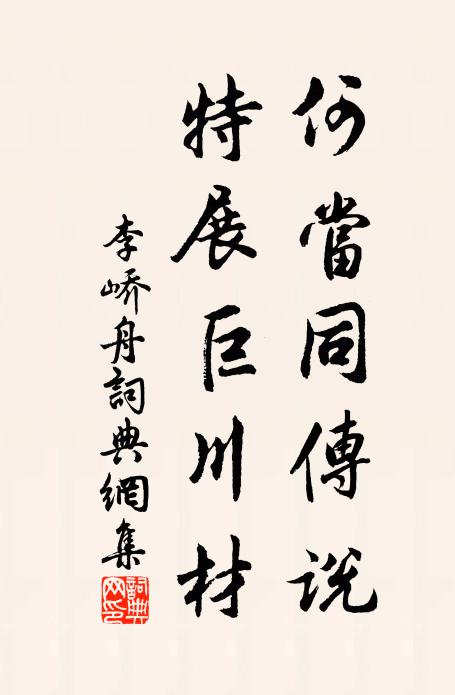 何當同傳説
特展巨川材
李嶠舟詞典網集
詞典網印